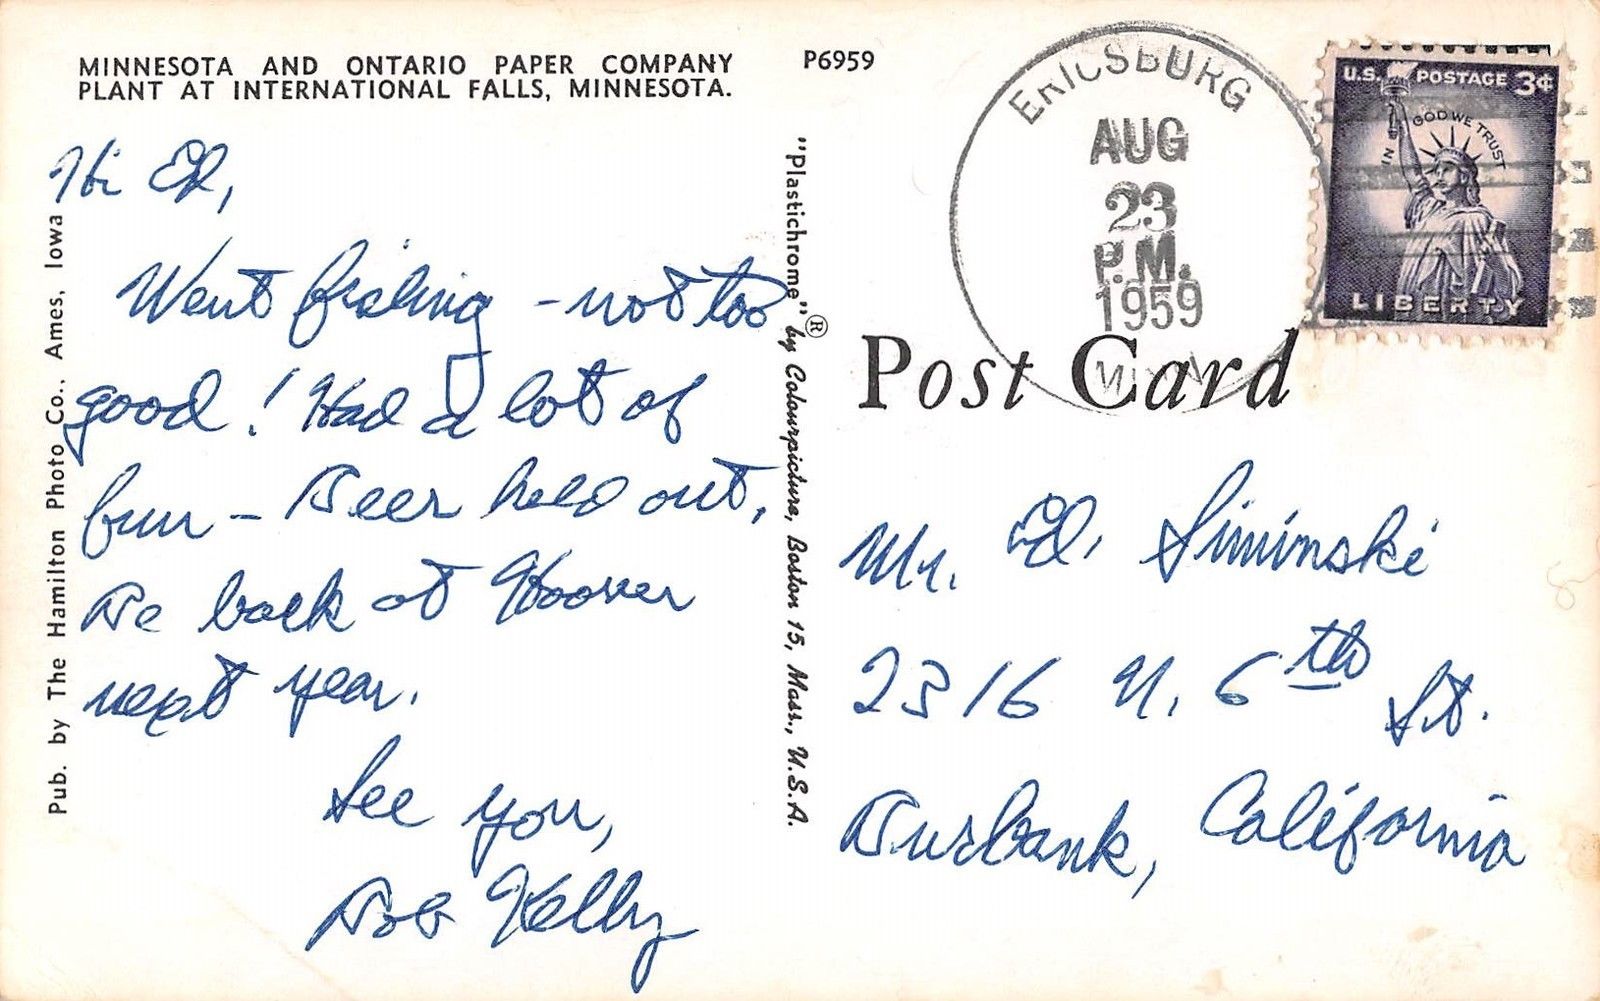 MINNESOTA AND ONTARIO PAPER COMPANY
PLANT AT INTERNATIONAL FALLS, MINNESOTA.
P6959
Hi Ed,
Went fishing - not too
good! Had a lot of
fun - Beer held out,
Be back at Hoover
next year.
See you,
Bob Kelly
Pub. by The Hamilton Photo Co., Ames, Iowa
"Plastichrome"® by Colourpicture, Boston 15, Mass., U.S.A.
ERICSBURG
AUG
23
P.M.
1959
U.S. POSTAGE 3¢
IN GOD WE TRUST
LIBERTY
Post Card
Mr. Ed. Siminski
2316 N. 6th St.
Burbank, California